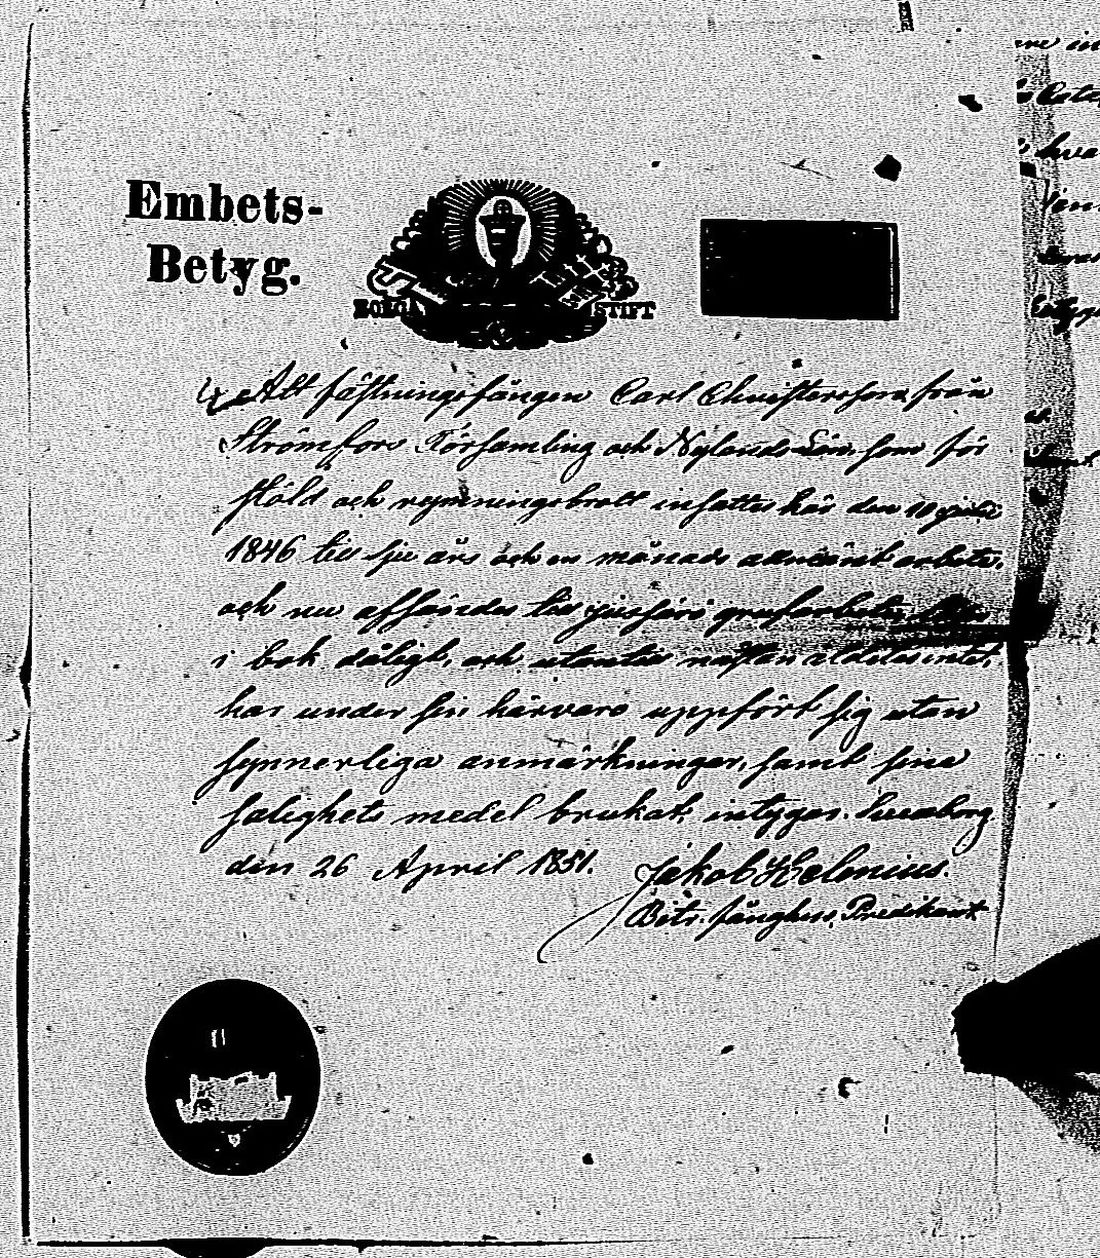 Embets-
Betyg.
BORGÅ STIFT
Att fästningsfången Carl Christersson från
Strömfors Församling och Nylands Län, som för
stöld och rymningsbrott insattes här den 10 julii
1846 till sju års och en månads allmänt arbete,
och nu affärdas till grufarbete, läser
i bok dåligt, och utantill nästan aldeles intet,
har under sin härvaro uppfört sig utan
synnerliga anmärkningar, samt sina
salighets medel brukat, intygar. Sveaborg
den 26 April 1851. Jakob Helenius.
Bitr. fånghus Predikant